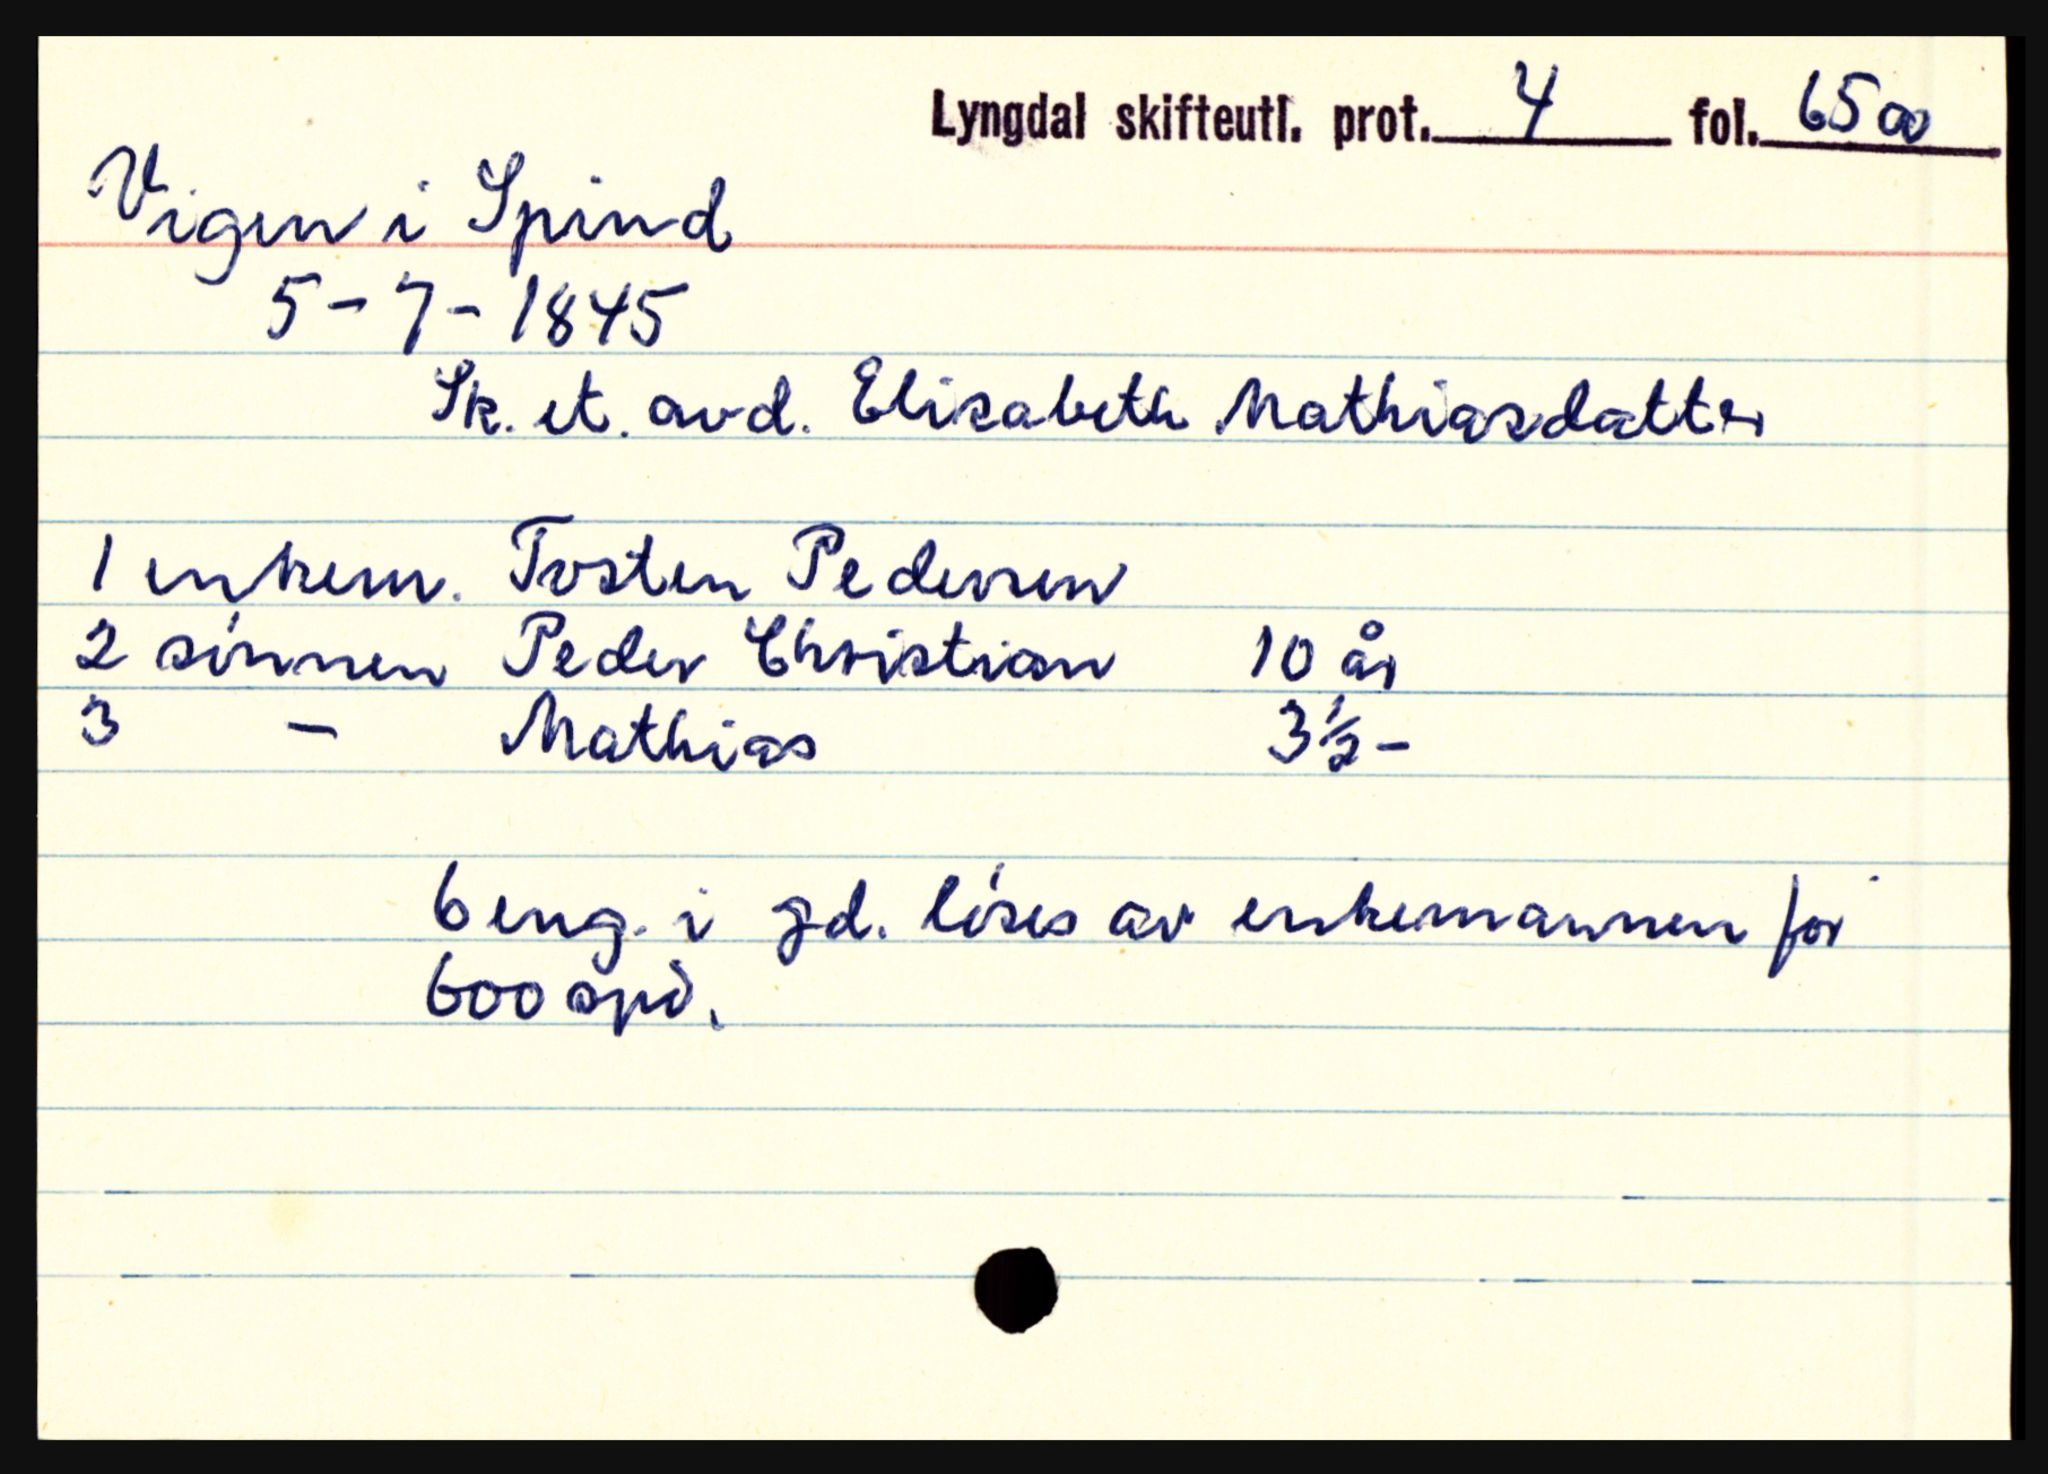 Lyngdal skifteutl. prot. 4 fol. 65
Vigen i Spind
5-7-1845
Sk. et. avd. Elisabeth Mathiasdatter
1 enkem. Tosten Pedersen
2 sønnen Peder Christian 10 år
3 - Mathias 3½ -
6 eng. i gd. løses av enkemannen for
600 spd.